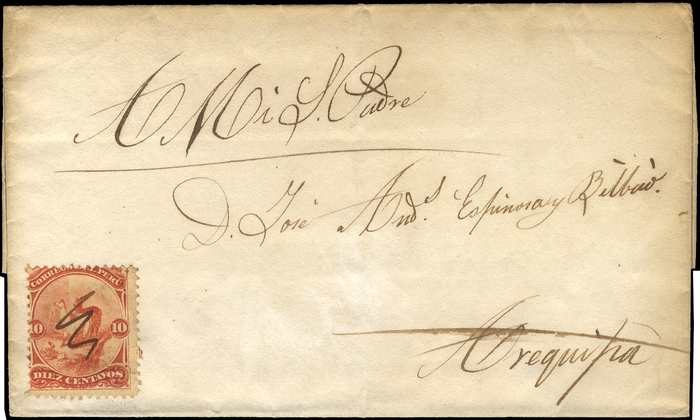 A Mi S. Padre
D. José And.s Espinosa y Bilbao.
Arequipa
CORREOS DEL PERU
10 10
DIEZ CENTAVOS